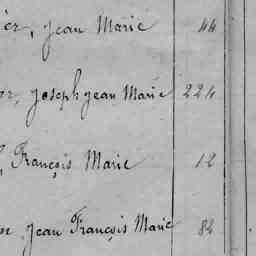 er, Jean Marie 44
er, Joseph Jean Marie 224
, François Marie 12
Jean François Marie 82